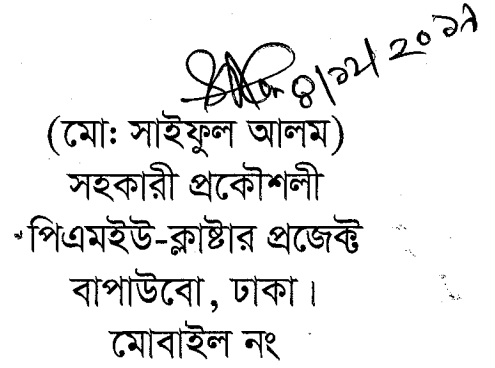 ৪/১২/২০১৯
(মো: সাইফুল আলম)
সহকারী প্রকৌশলী
পিএমইউ-ক্লাষ্টার প্রজেক্ট
বাপাউবো, ঢাকা।
মোবাইল নং